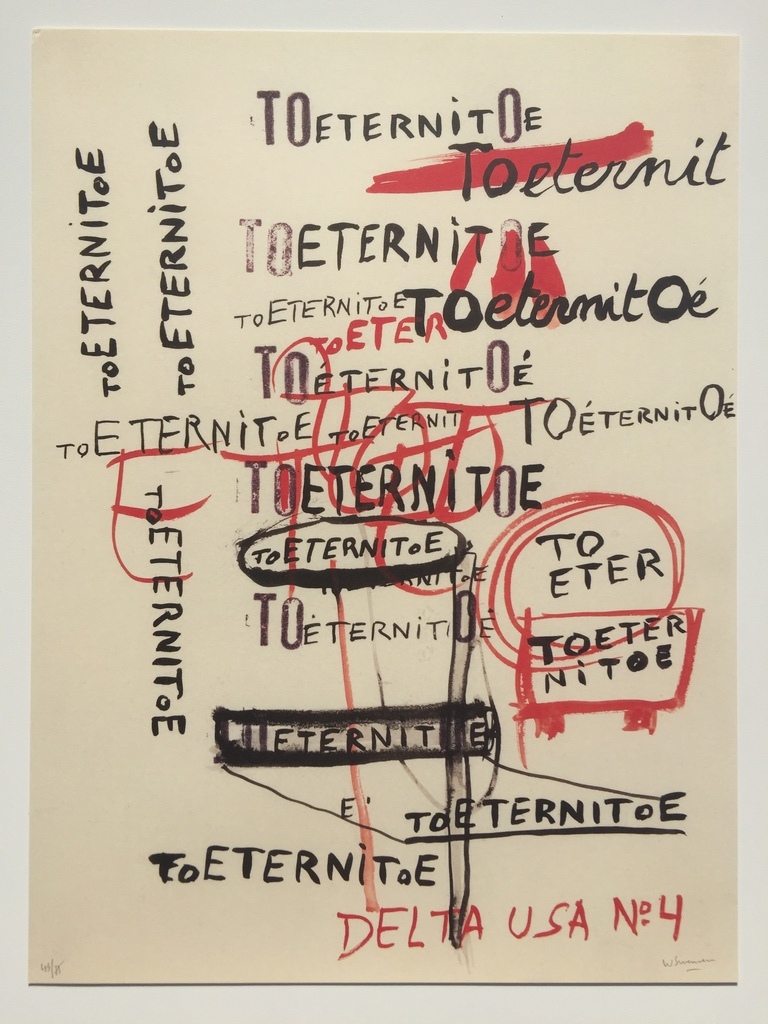 TOETERNiTOE
TOeternit
TOETERNiTOE
TOETERNiTOE
TOeternitOé
TOETER
TOÉTERNiTOÉ
TOETERNiTOE
TOETERNIT
TOÉTERNiTOÉ
TOETERNiTOE
TOETERNiTOE
TO
ETER
TOÉTERNITOÉ
TOETER
NiTOE
ETERNITOE
E'
TOETERNiTOE
TOETERNiTOE
DELTA USA Nº4
TOETERNiTOE
TOETERNiTOE
TOETERNiTOE